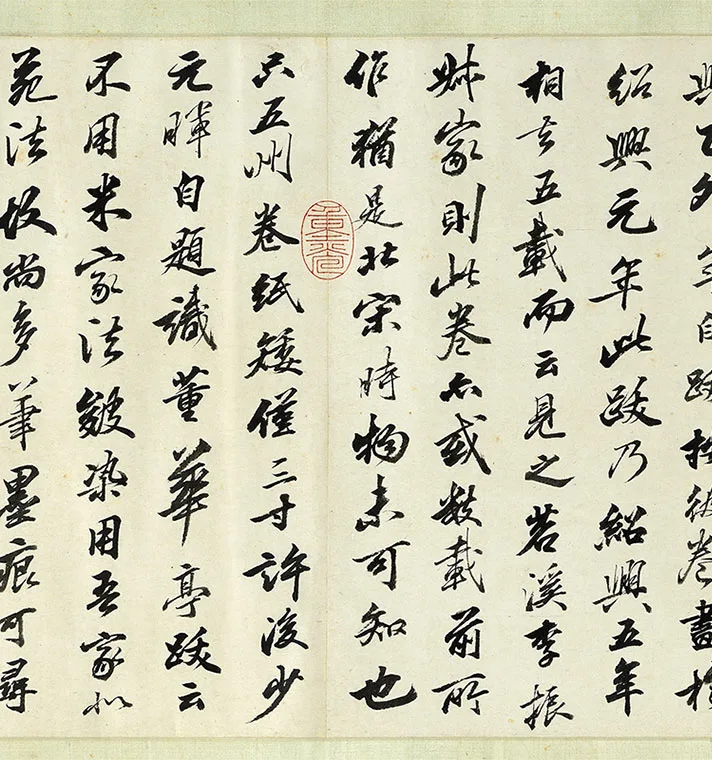 年自跋於彼卷畫於
紹興元年此跋乃紹興五年
相去五載而云見之苕溪李振
叔家則此卷亦或數載前所
作猶是北宋時物未可知也
只五州卷紙矮僅三寸許後少
元暉自題識董華亭跋云
不用米家法皴染用吾家北
苑法故尚多筆墨痕可尋